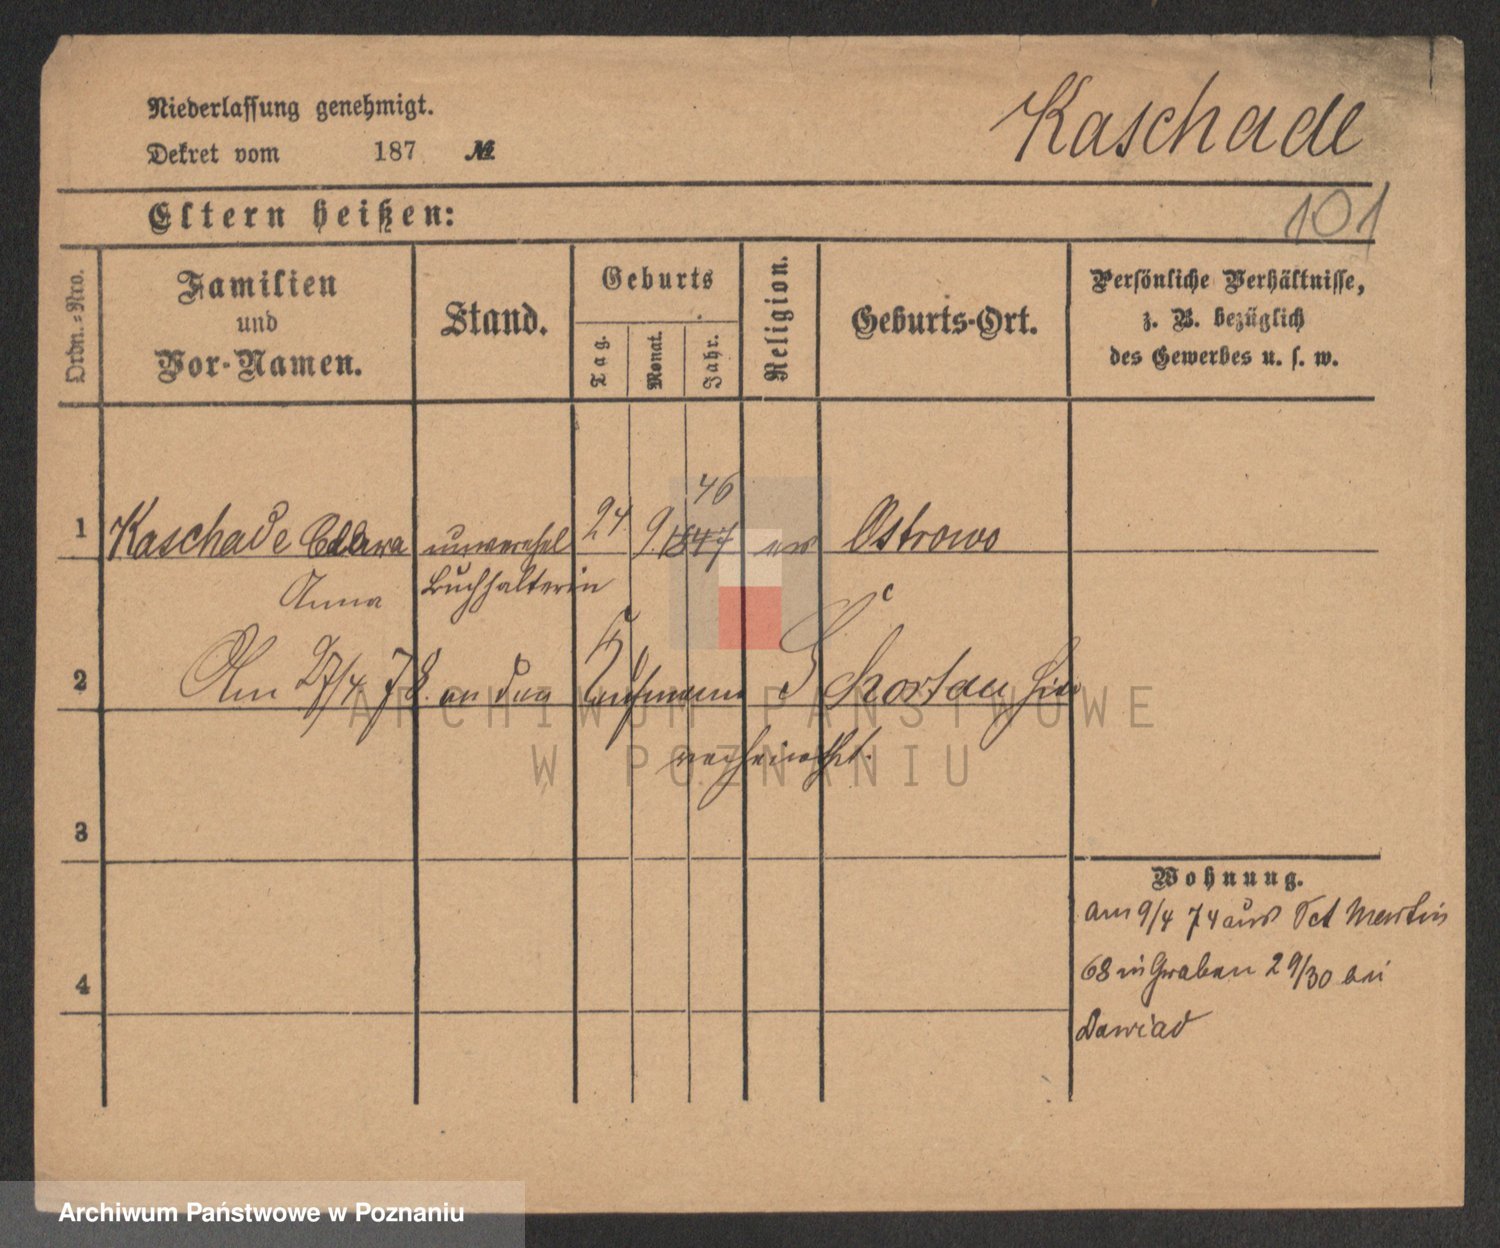 Niederlassung genehmigt.
Kaschade
Dekret vom 187 №
Eltern heißen:
101
Ordn.-Nro.
Familien
und
Vor-Namen.
Stand.
Geburts
Tag.
Monat.
Jahr.
Religion.
Geburts-Ort.
Persönliche Verhältnisse,
z. B. bezüglich
des Gewerbes u. s. w.
46
1 Kaschade Clara unverehel 24. 9. 1847 ev Ostrowo
Anna Buchhalterin
2 Am 27/4 78. an den Kaufmann hier
verheirathet.
3
Wohnung.
am 9/4 74 aus Sct Martin
68 in Graben 29/30 bei
4
Dawiad
ARCHIWUM PAŃSTWOWE
W POZNANIU
Archiwum Państwowe w Poznaniu